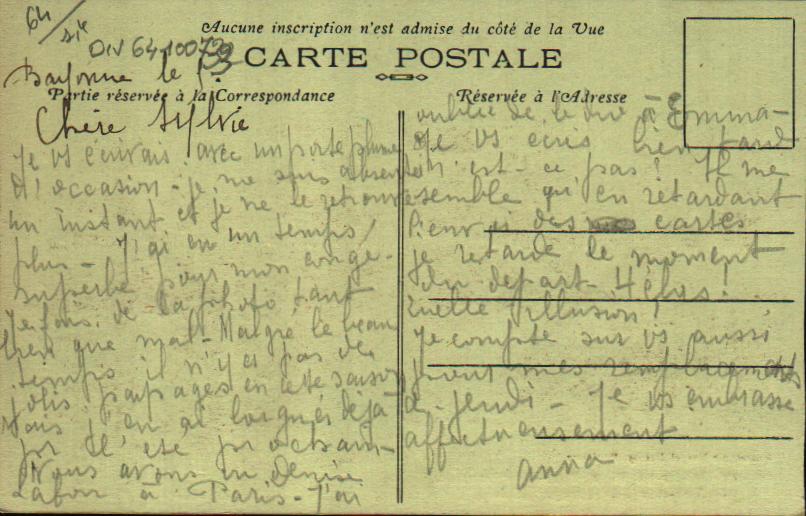 64/
DIV 64-10079
Aucune inscription n'est admise du côté de la Vue
CARTE POSTALE
Bayonne le
Partie réservée à la Correspondance
Réservée à l'Adresse
Chère Sylvie
Je vs écrivais avec un porte plume
d'occasion - je me suis absentée
un instant et je ne le retrouve
plus - J'ai eu un temps
superbe pour mon congé -
Je fais de la photo tant
bien que mal - Malgré le beau
temps il n'y a pas de
jolis paysages en cette saison
mais j'en ai lorgnés déjà
pr l'été prochain -
Nous avons un
à Paris - J'ai
oublié de le dire à Emma -
Je vs écris bien tard
n'est-ce pas ! Il me
semble qu'en retardant
l'envoi des cartes
je retarde le moment
du départ - Hélas !
quelle illusion !
Je compte sur vs aussi
pour mes remplacements
de jeudi - Je vs embrasse
affectueusement
Anna